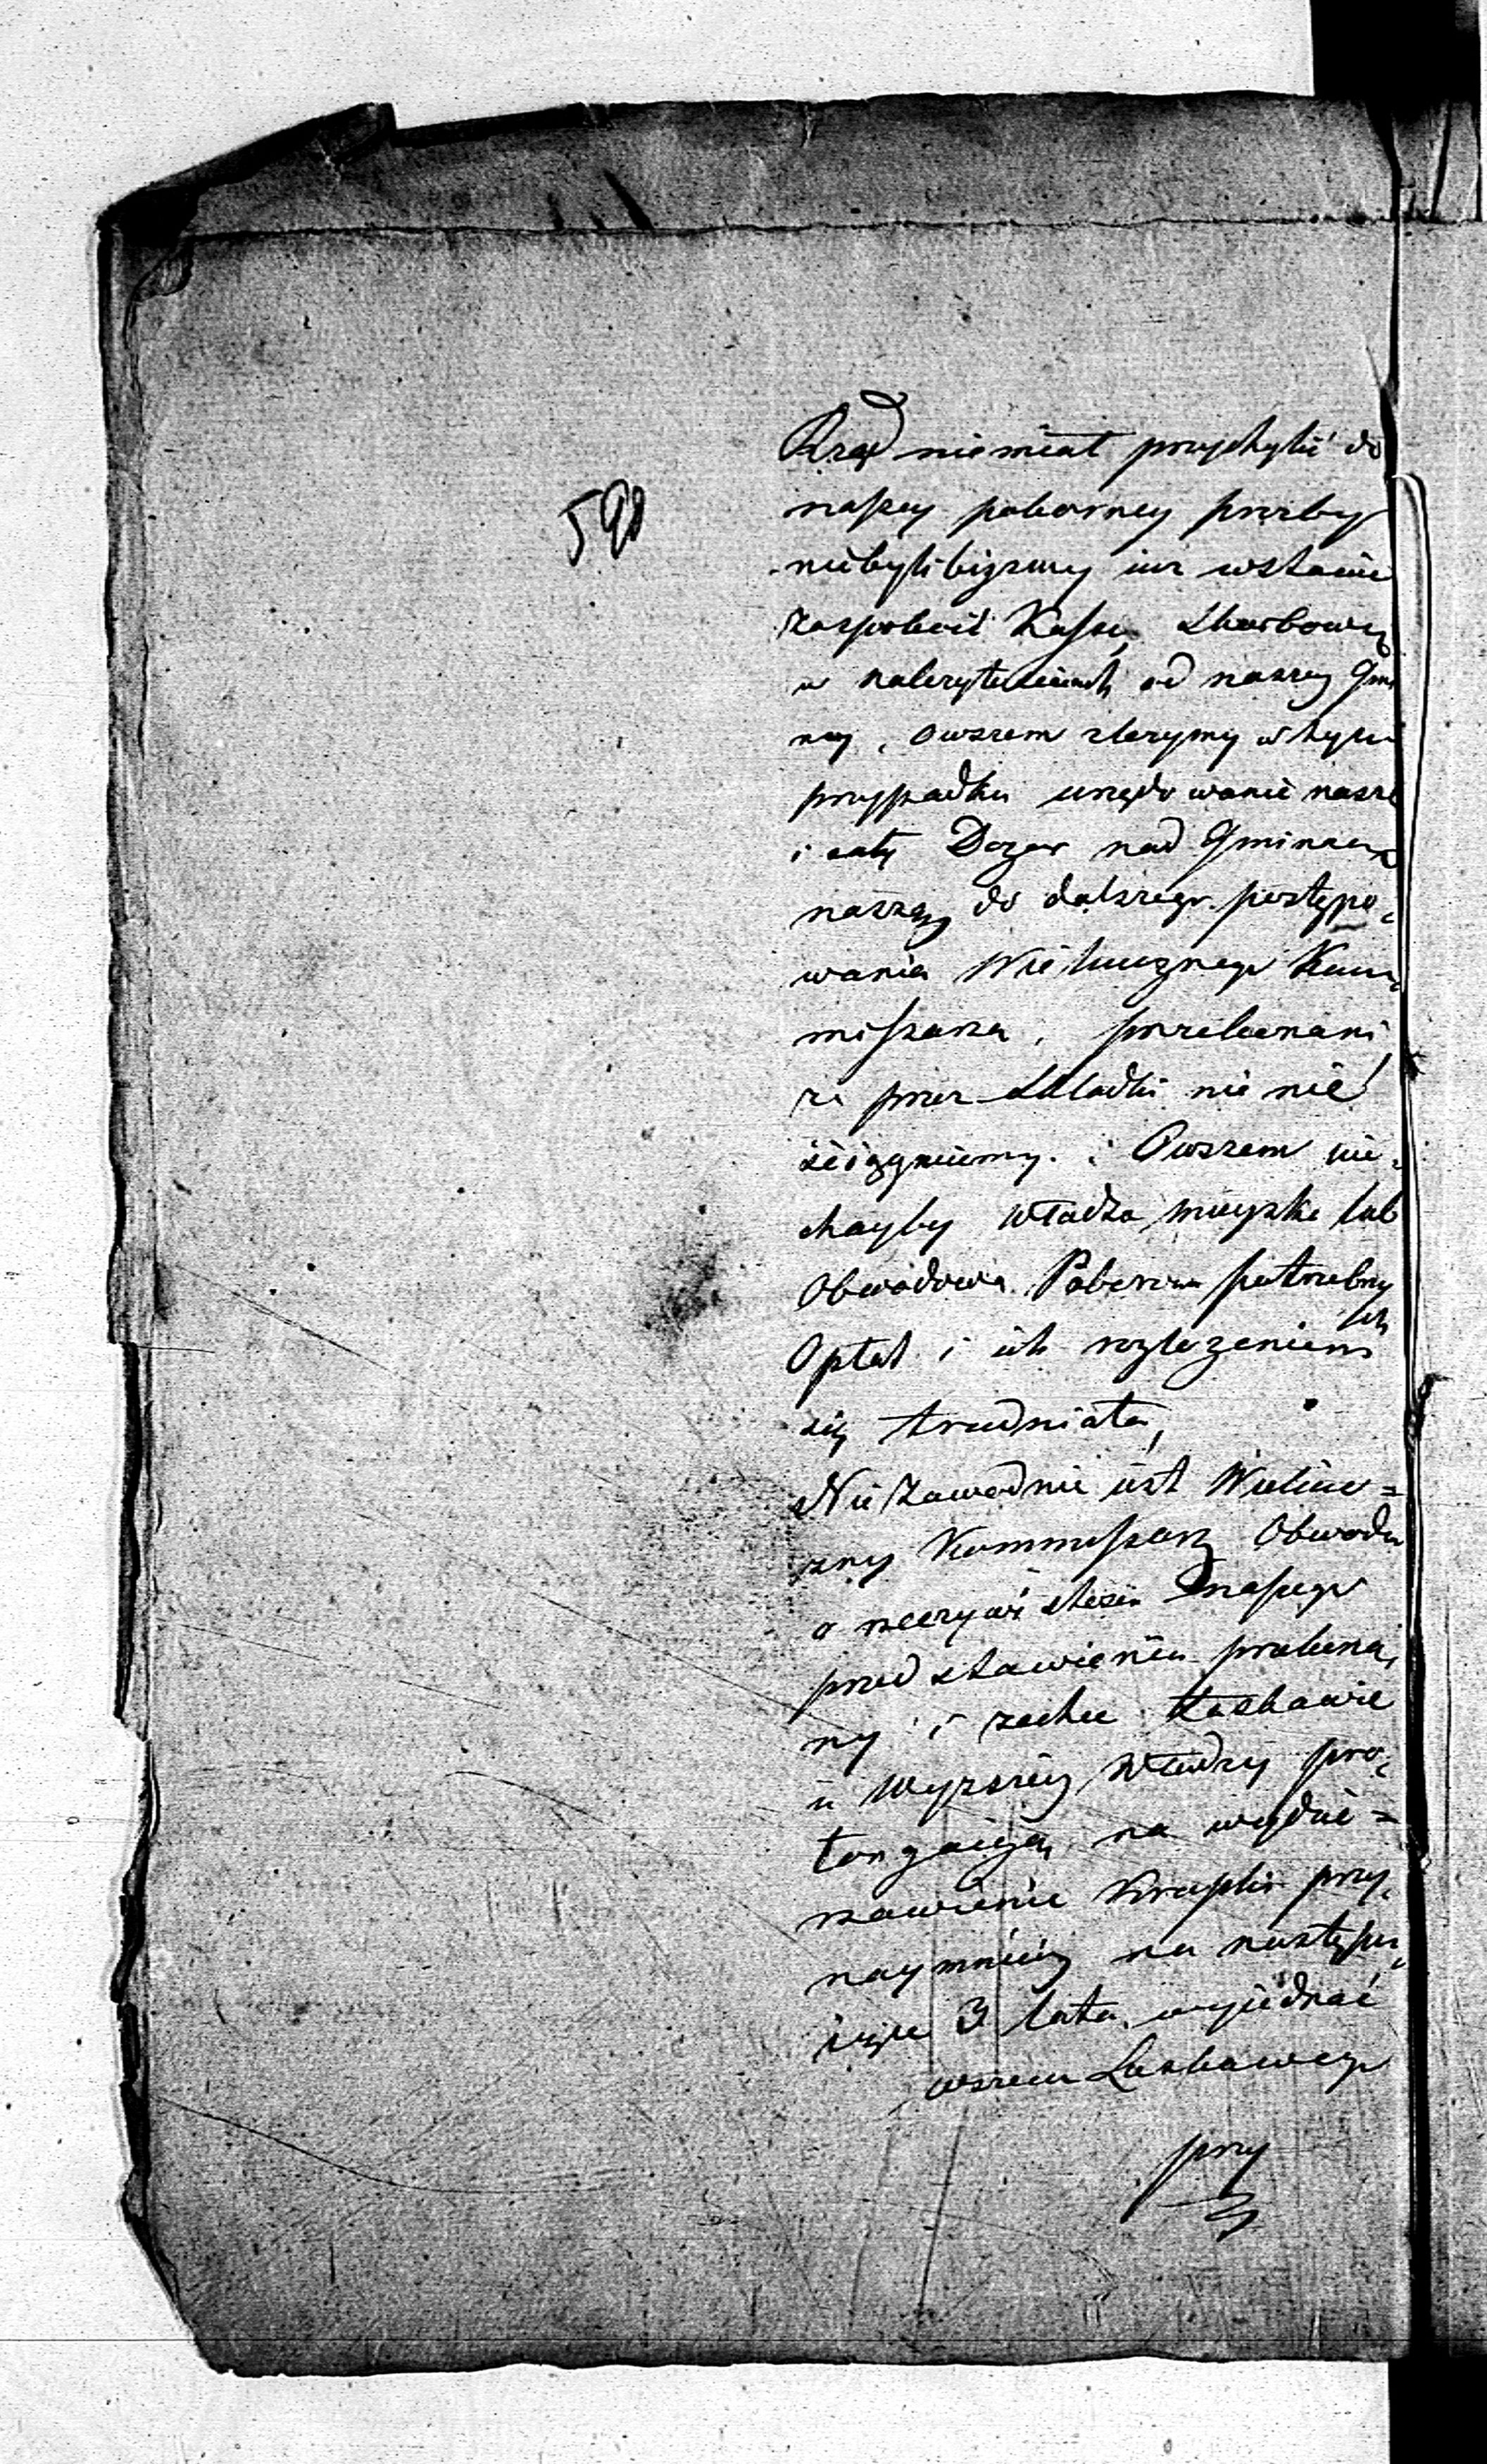 590
Rząd niemiał przychylić do
naszey pokorney prozby
niebylibyszmy iuż wstanie
zaspokoić Kassę Skarbową
w należytościach od naszey Gmi
ny, owszem złożymy w tym
przypadku urzędowanie nasze
i cały Dozor nad Gminną
naszą do dalszego postępo„
wania Wielmożnego Kom„
missarza, przekonani
że przez składki nic nie
ściągniemy. i Owszem nie„
chayby władza mieyska lub
Obwodowa Poborem potrzebny
ch
Opłat i ich rozłożeniem
się trudniła,
Niezawodnie iest Wielmo=
żny Kommissarz Obwodu
o rzeczywistości naszego
przedstawienia przekona„
ny i zechce łaskawie
u Wyższey Władzy pro„
longacyą na wydzie=
rzawienie Kropki przy„
naymniey na następu„
iące 3 lata wyjednać
wszem Łaskawego
przy